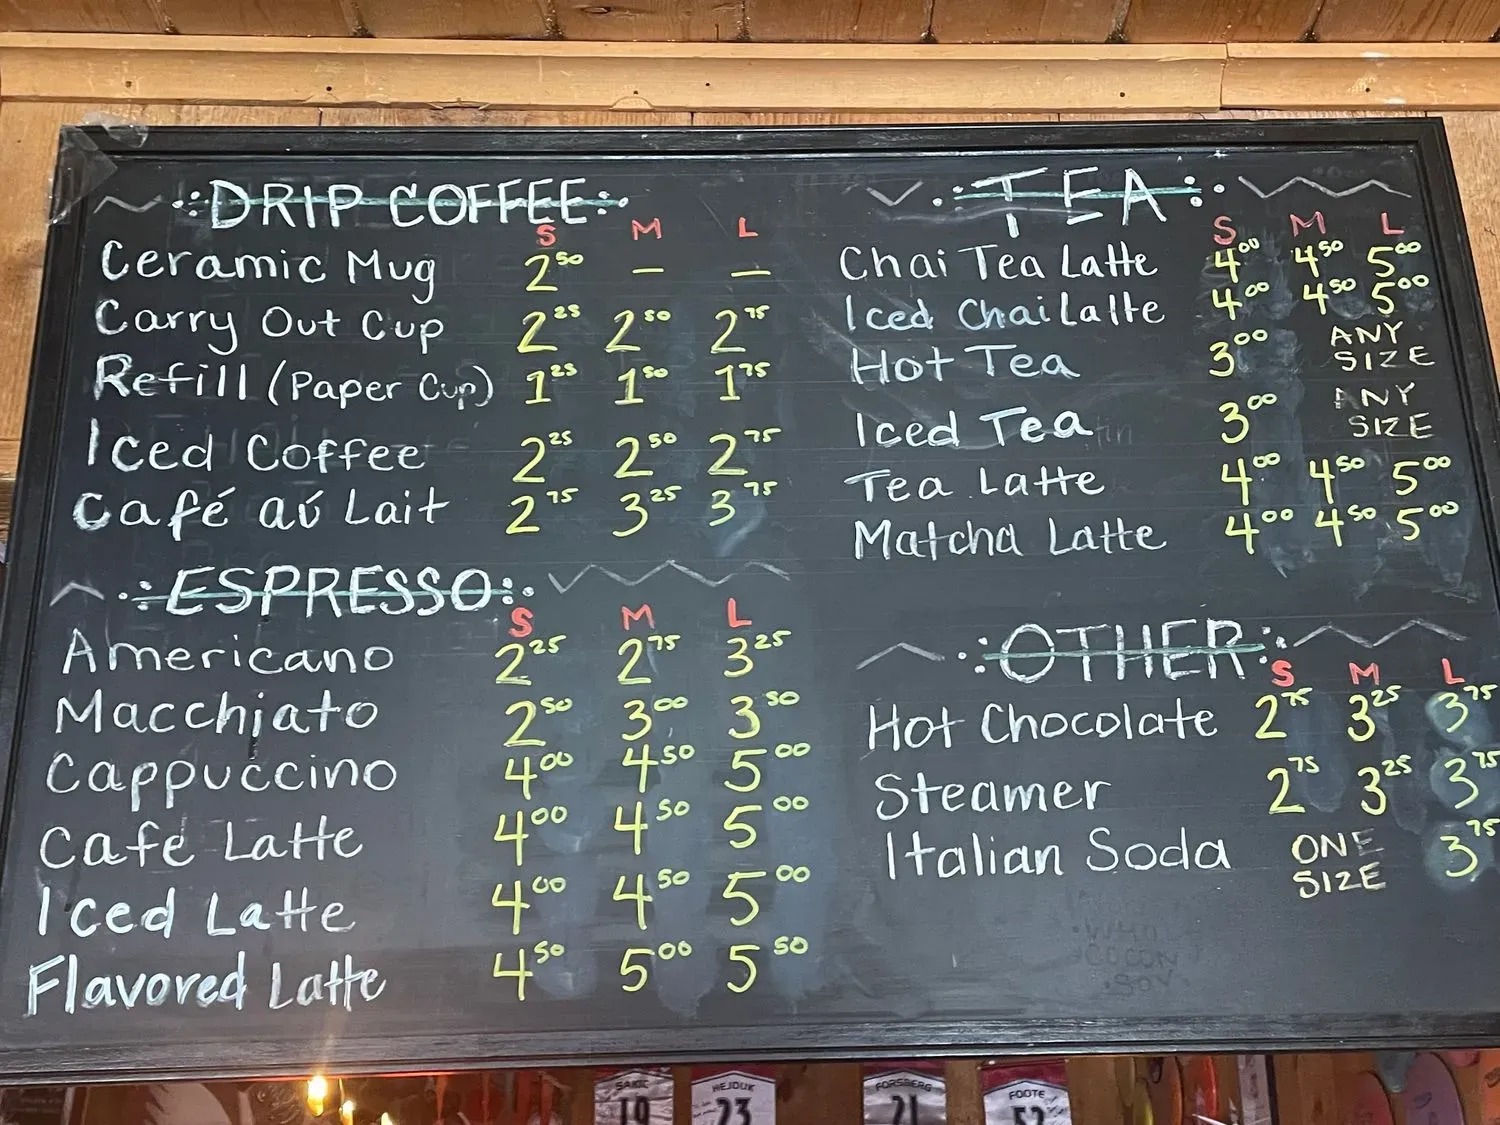 DRIP COFFEE
S M L
Ceramic Mug 2⁵⁰ — —
Carry Out Cup 2²⁵ 2⁵⁰ 2⁷⁵
Refill (Paper Cup) 1²⁵ 1⁵⁰ 1⁷⁵
Iced Coffee 2²⁵ 2⁵⁰ 2⁷⁵
Café aú Lait 2⁷⁵ 3²⁵ 3⁷⁵
ESPRESSO
S M L
Americano 2²⁵ 2⁷⁵ 3²⁵
Macchiato 2⁵⁰ 3⁰⁰ 3⁵⁰
Cappuccino 4⁰⁰ 4⁵⁰ 5⁰⁰
Café Latte 4⁰⁰ 4⁵⁰ 5⁰⁰
Iced Latte 4⁰⁰ 4⁵⁰ 5⁰⁰
Flavored Latte 4⁵⁰ 5⁰⁰ 5⁵⁰
TEA
S M L
Chai Tea Latte 4⁰⁰ 4⁵⁰ 5⁰⁰
Iced Chai Latte 4⁰⁰ 4⁵⁰ 5⁰⁰
Hot Tea 3⁰⁰ ANY
SIZE
Iced Tea 3⁰⁰ ANY
SIZE
Tea Latte 4⁰⁰ 4⁵⁰ 5⁰⁰
Matcha Latte 4⁰⁰ 4⁵⁰ 5⁰⁰
OTHER
S M L
Hot Chocolate 2⁷⁵ 3²⁵ 3⁷⁵
Steamer 2⁷⁵ 3²⁵ 3⁷⁵
Italian Soda ONE 3⁷⁵
SIZE
SAKIC
19
HEJDUK
23
FORSBERG
21
FOOTE
52